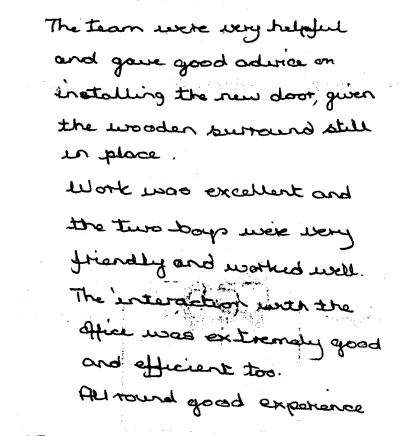 The team were very helpful
and gave good advice on
installing the new door, given
the wooden surround still
in place.
Work was excellent and
the two boys were very
friendly and worked well.
The interaction with the
office was extremely good
and efficient too.
All round good experience